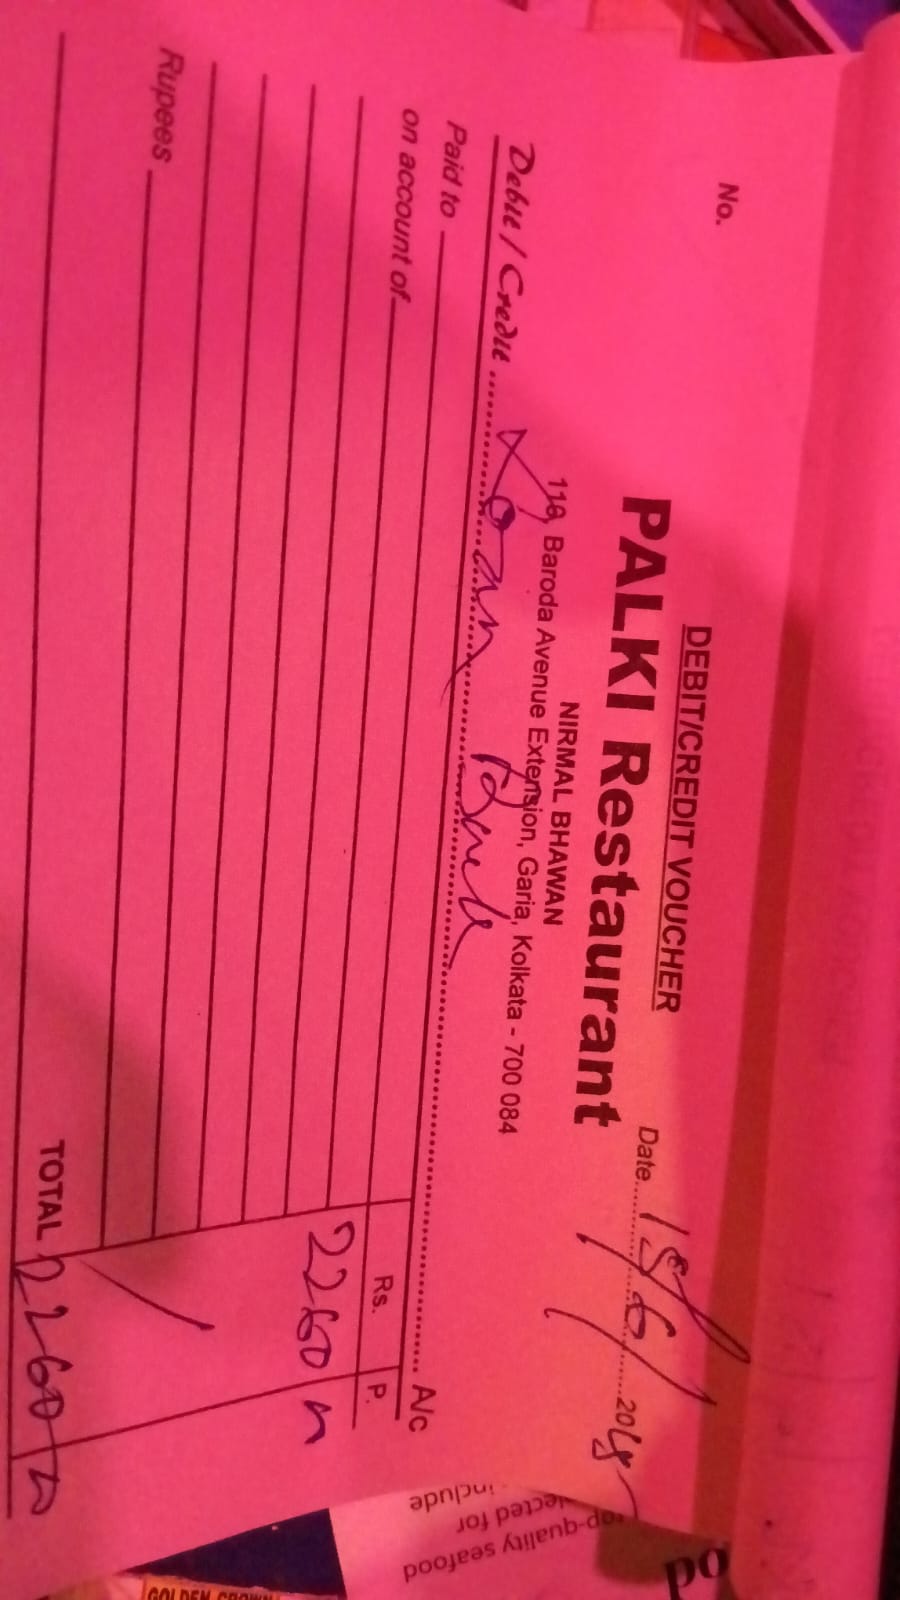 DEBIT/CREDIT VOUCHER
No.
Date 18/6/2018
PALKI Restaurant
NIRMAL BHAWAN
116, Baroda Avenue Extension, Garia, Kolkata - 700 084
Debit / Credit Loan A/c
Paid to
on account of
Rs. P.
2260
Rupees
TOTAL 2260
od
top-quality seafood
selected for
include
GOLDEN CROWN